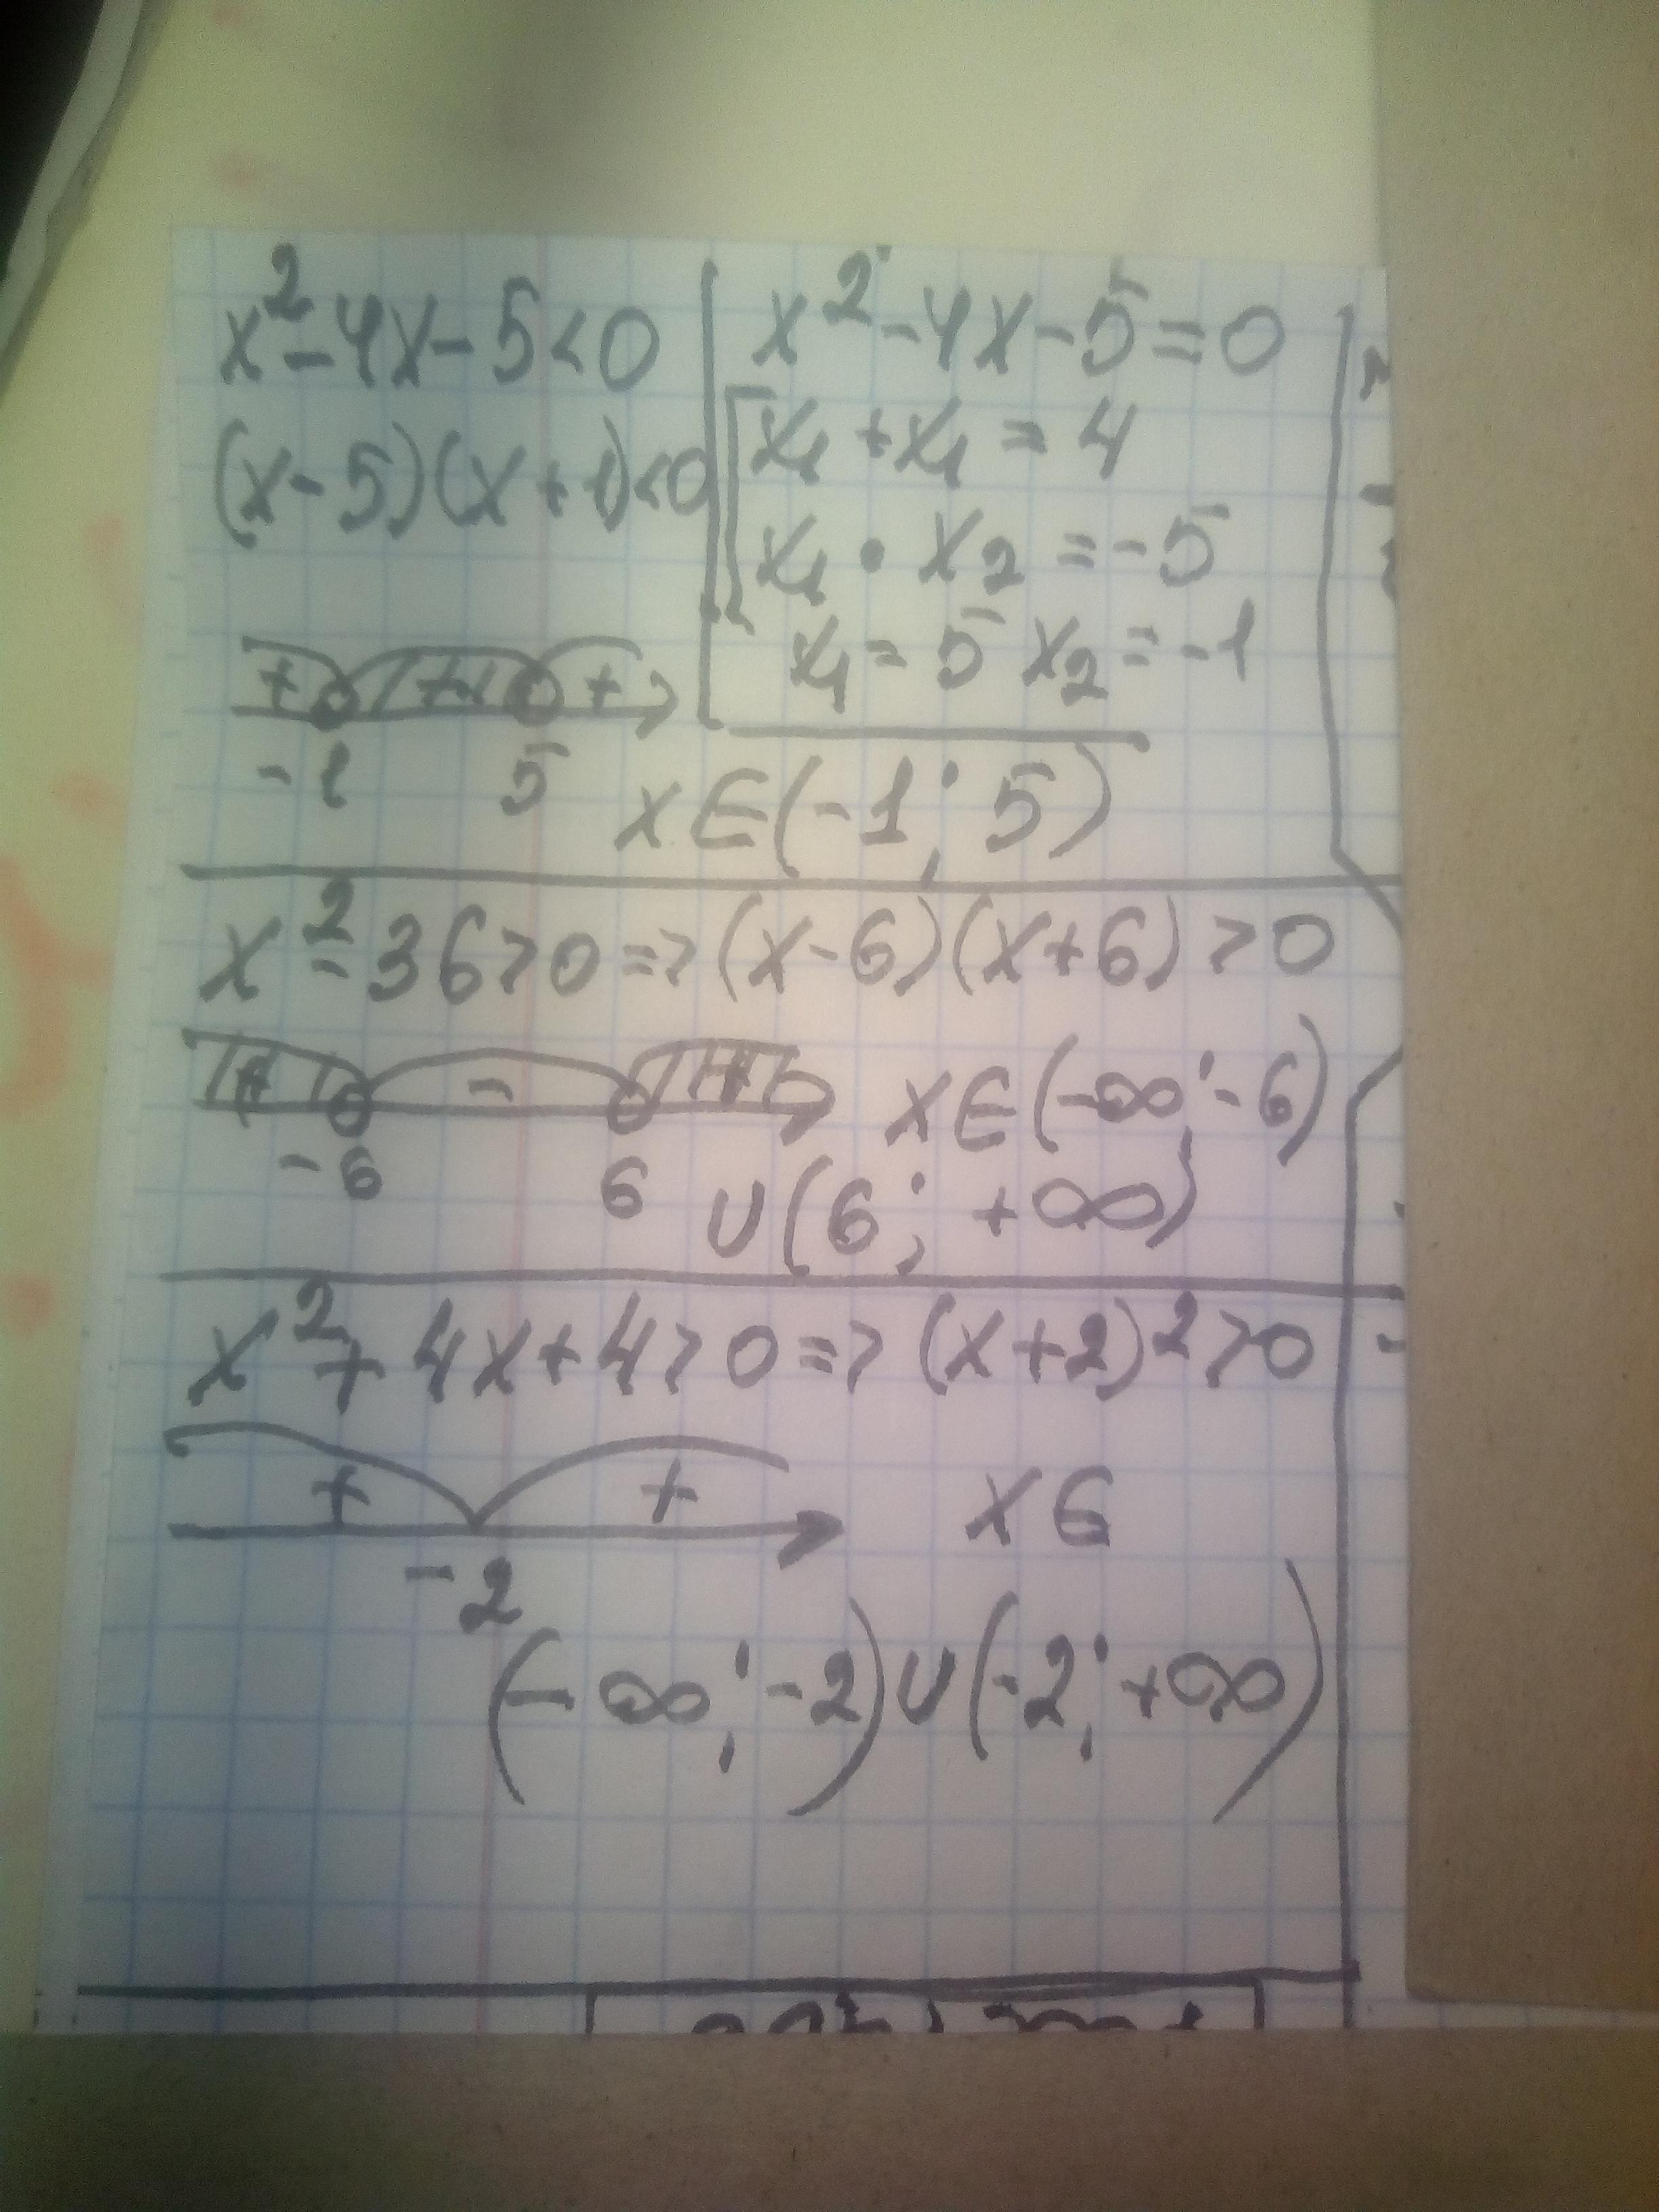 x²-4x-5<0
(x-5)(x+1)<0
+ - +
-1 5
x²-4x-5=0
x₁+x₁=4
x₁•x₂=-5
x₁=5 x₂=-1
x∈(-1;5)
x²-36>0=>(x-6)(x+6)>0
+ - +
-6 6
x∈(-∞;-6)
∪(6;+∞)
x²+4x+4>0=>(x+2)²>0
+ +
-2
x∈
(-∞;-2)∪(-2;+∞)